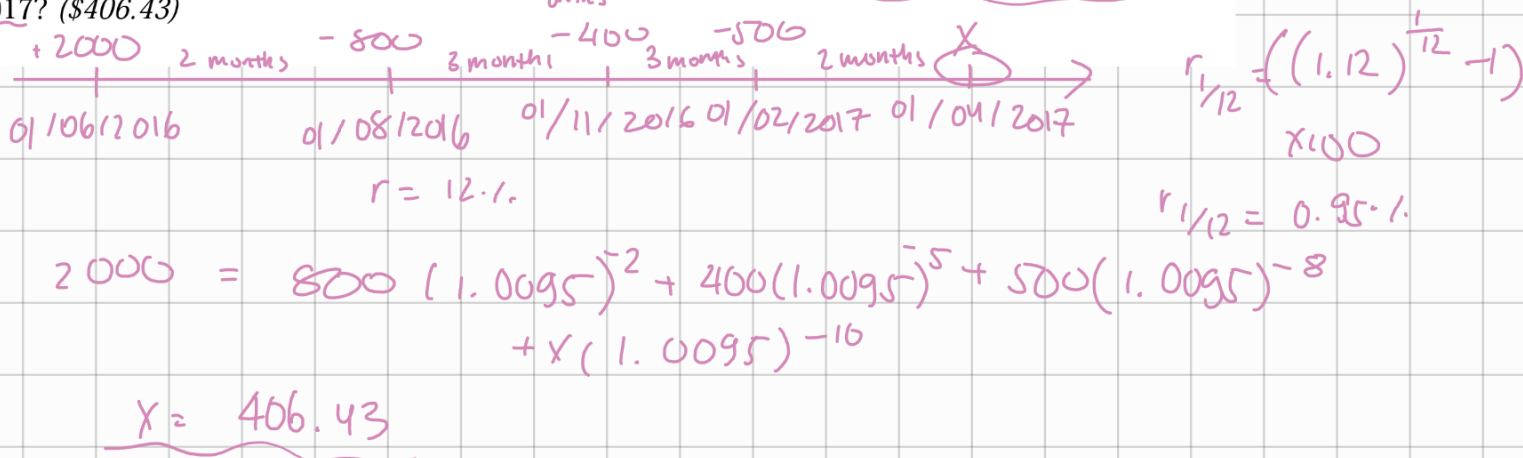 17? ($406.43)
+2000 2 months -800 3 months -400 3 months -500 2 months X
01/06/2016 01/08/2016 01/11/2016 01/02/2017 01/04/2017
r 1/12 = ((1.12)^1/12 -1)
x100
r = 12%
r 1/12 = 0.95%
2000 = 800 (1.0095)^-2 + 400(1.0095)^-5 + 500(1.0095)^-8
+ x(1.0095)^-10
X = 406.43